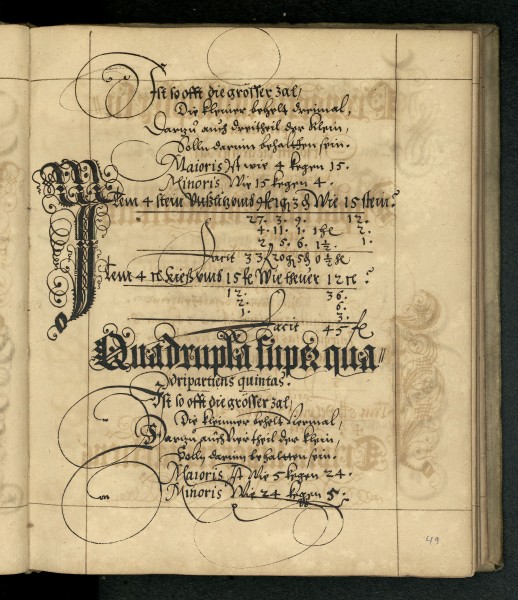 Ist so offt die grösser zal,
Die kleiner behelt dreimal,
Darzu auch dreitheil der klein,
Solln darum behalthen sein.
Maioris Ist wie 4 kegen 15.
Minoris Wie 15 kegen 4.
Item 4 stein Wie 15 stein?
27. 3. 9. 12.
4. 11. 1. 2.
2. 5. 6. 1½. 1.
Facit 33
Item 4 15 Wie theuer 12 ?
12. 36.
2. 6.
1. 3.
Facit 45
Quadrupla super qua
dripartiens quintas.
Ist so offt die grösser zal,
Die kleinner behelt viermal,
Darzu auch viertheil der klein,
Solln darum behaltten sein.
Maioris Ist Wie 5 kegen 24.
Minoris Wie 24 kegen 5.
49